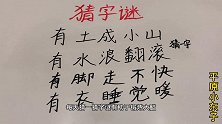 猜字谜
有土成小山
有水浪翻滚 猜字
有脚走不快
有衣睡觉暖
平原小